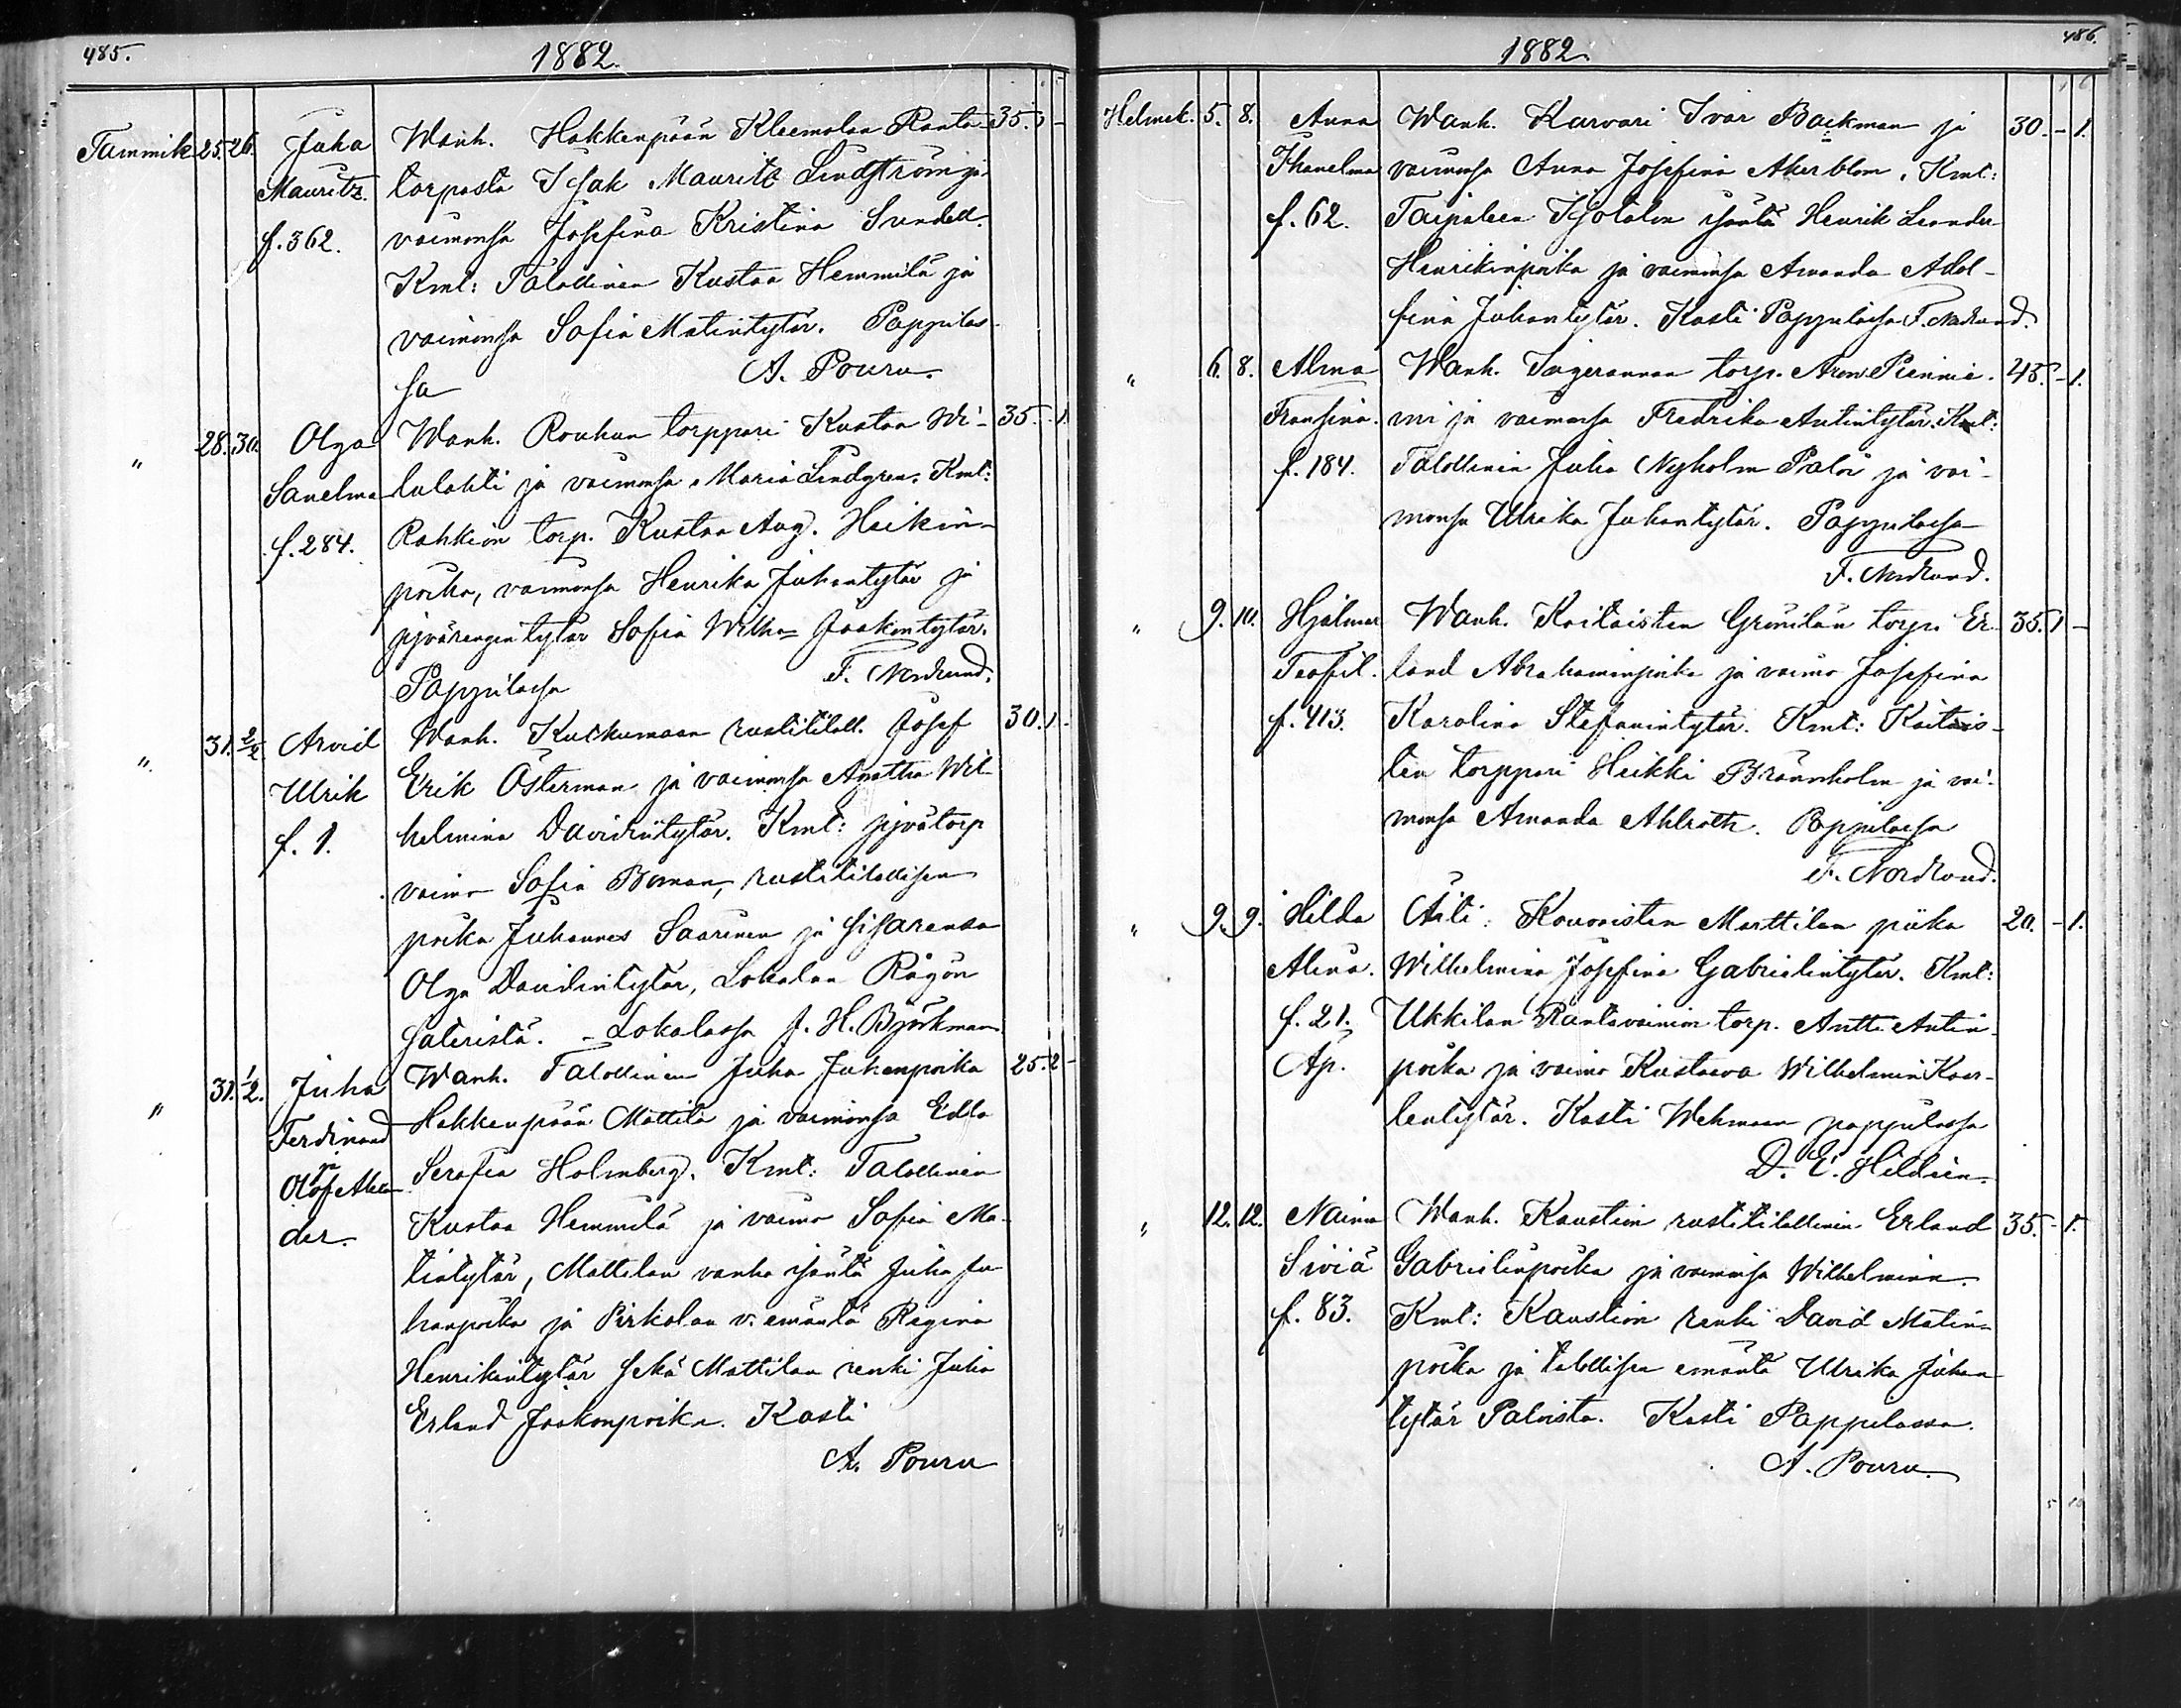 485.
1882.
Tammik. 25. 26. Juha Wanh. Hakkenpään Kleemolan Ranta- 35. 1 -
Mauritz. torpasta Isak Mauritz Lindström ja
f. 362. vaimonsa Josefina Kristina Sundell.
Kmt: Talollinen Kustaa Hemmilä ja
vaimonsa Sofia Matintytär. Pappilas-
sa A. Pouru.
" 28. 30. Olga Wanh. Rouhun torppari Kustaa Wi- 35. - 1.
Sanelma lulahti ja vaimonsa Maria Lindgren. Kmt:
f. 284. Rahkion torp. Kustaa Aug. Heikin-
poika, vaimonsa Henrika Juhantytär ja
itytär Sofia Wilha= Jaakontytär.
Pappilassa F. Nordlund.
". 31. 2/2 Arvid Wanh. Kuckumaan rustitilall. Josef 30. 1. -
Ulrik Erik Österman ja vaimonsa Agatha Wil-
f. 1. helmina Davidintytär. Kmt: torp
vaimo Sofia Boman, rustitilallisen
poika Juhannes Saarinen ja sisarensa
Olga Davidintytär, Lokalan Rägön
säteristä. - Lokalassa J. H. Björkman
" 31. 1/2. Juha Wanh. Talollinen Juha Juhanpoika 25. 2 -
Ferdinand Hakkenpään Mattila ja vaimonsa Edla
ja Serafia Holmberg. Kmt: Talollinen
Olof Alexander. Kustaa Hemmilä ja vaimo Sofia Ma-
tintytär, Mattilan vanha isäntä Juha Ju-
hanpoika ja Pirkolan v. emäntä Regina
Henrikintytär sekä Mattilan renki Juha
Erland Jaakonpoika. Kasti
A. Pouru
486.
1882.
Helmik. 5. 8. Anna Wanh. Karvari Ivar Backman ja 30. - 1.
vaimonsa Anna Josefina Åkerblom. Kmt:
f. 62. Taipaleen Isotalon isäntä Henrik Leander
Henrikinpoika ja vaimonsa Amanda Adol-
fina Juhantytär. Kasti Pappilassa F. Nordlund.
" 6. 8. Alma Wanh. torp. Aron Piennie- 43. - 1.
Fransina. mi ja vaimonsa Fredrika Antintytär. Kmt:
f. 184. Talollinen Juha Nyholm Paloi ja vai-
monsa Ulrika Juhantytär. Pappilassa
F. Nordlund.
" 9. 10. Hjalmar Wanh. Kaitaisten Grönilän torp. Er- 35. 1 -
Teofil. land Abrahaminpoika ja vaimo Josefina
f. 413. Karolina Stefanintytär. Kmt: Kaitais-
ten torppari Heikki Brännholm ja vai-
monsa Amanda Ahlroth. Pappilassa
F. Nordlund.
" 9. 9. Hilda Äiti: Kouvoisten Marttilan piika 20. - 1.
Alina. Wilhelmina Josefina Gabrielintytär. Kmt:
f. 21. Ukkilan Rantavainion torp. Antti Antin-
Äp. poika ja vaimo Kustaava Wilhelmina Kaar-
lentytär. Kasti Wehmaan pappilassa
D. E. Hildéen.
" 12. 12. Naima Wanh. Kaustion rustitilallinen Erland 35. - 1.
Siviä Gabrielinpoika ja vaimonsa Wilhelmina.
f. 83. Kmt: Kaustion renki David Matin-
poika ja talollisen emäntä Ulrika Juhan-
tytär Paloista. Kasti Pappilassa.
A. Pouru.